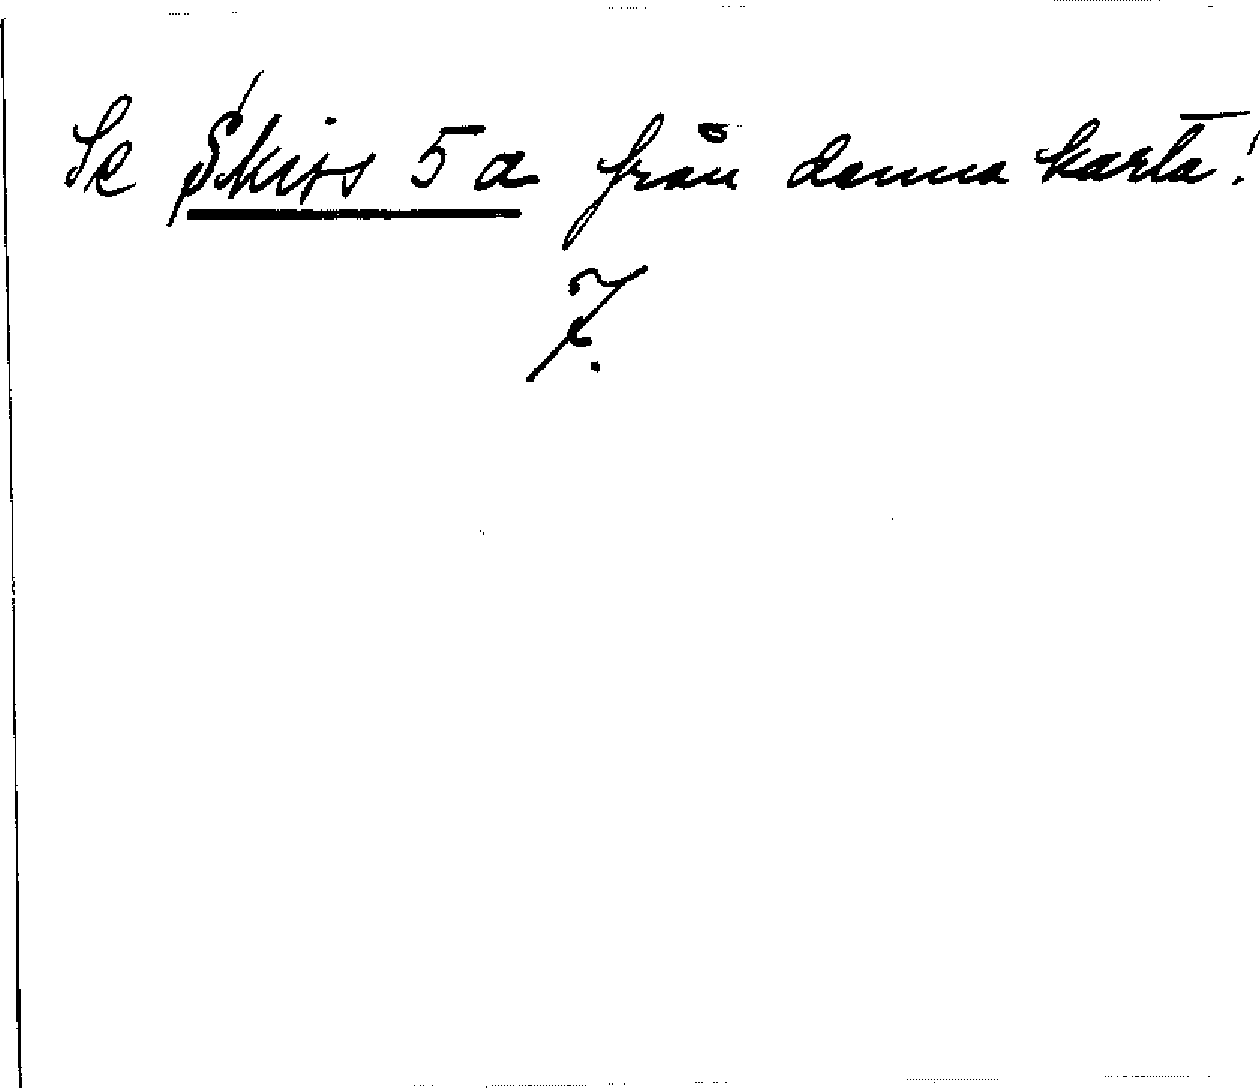 Se Skiss 5a från denna karta!